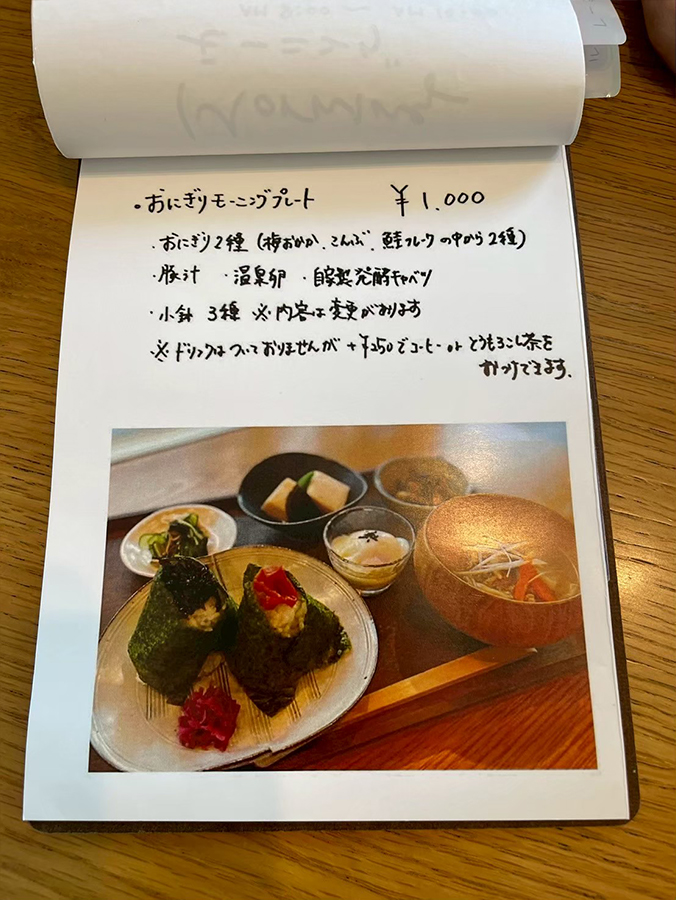 ・おにぎりモーニングプレート ¥1,000
・おにぎり2種（梅おかか、こんぶ、鮭フレークの中から2種）
・豚汁 ・温泉卵 ・自家製発酵キャベツ
・小鉢 3種 ※内容は変更があります
※ドリンクはついておりませんが +¥250でコーヒー or とうもろこし茶を
おつけできます。